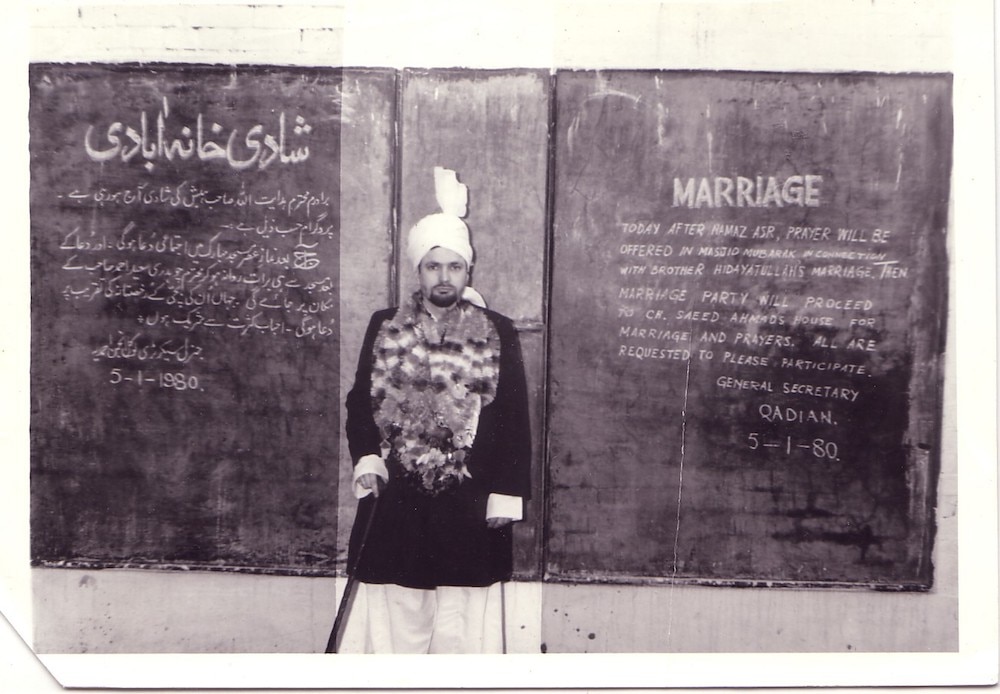 شادی خانہ آبادی
برادرم محترم ہدایت اللہ صاحب ہبش کی شادی آج ہو رہی ہے ۔
پروگرام حسب ذیل ہے :-
بعد نماز عصر مسجد مبارک میں اجتماعی دُعا ہوگی ۔ اور دُعا کے
بعد مسجد سے ہی برات روانہ ہوکر محترم چوہدری سعید احمد صاحب کے
مکان پر جائے گی ۔ جہاں اُن کی بچی کے رخصتانہ کی تقریب پر
دعا ہوگی ۔ احباب کثرت سے شریک ہوں ۔
جنرل سیکرٹری لوکل انجمن احمدیہ
5-1-1980.
MARRIAGE
TODAY AFTER NAMAZ ASR, PRAYER WILL BE
OFFERED IN MASJID MUBARAK IN CONNECTION
WITH BROTHER HIDAYATULLAH'S MARRIAGE, THEN
MARRIAGE PARTY WILL PROCEED
TO CH. SAEED AHMADS HOUSE FOR
MARRIAGE AND PRAYERS. ALL ARE
REQUESTED TO PLEASE PARTICIPATE.
GENERAL SECRETARY
QADIAN.
5-1-80.